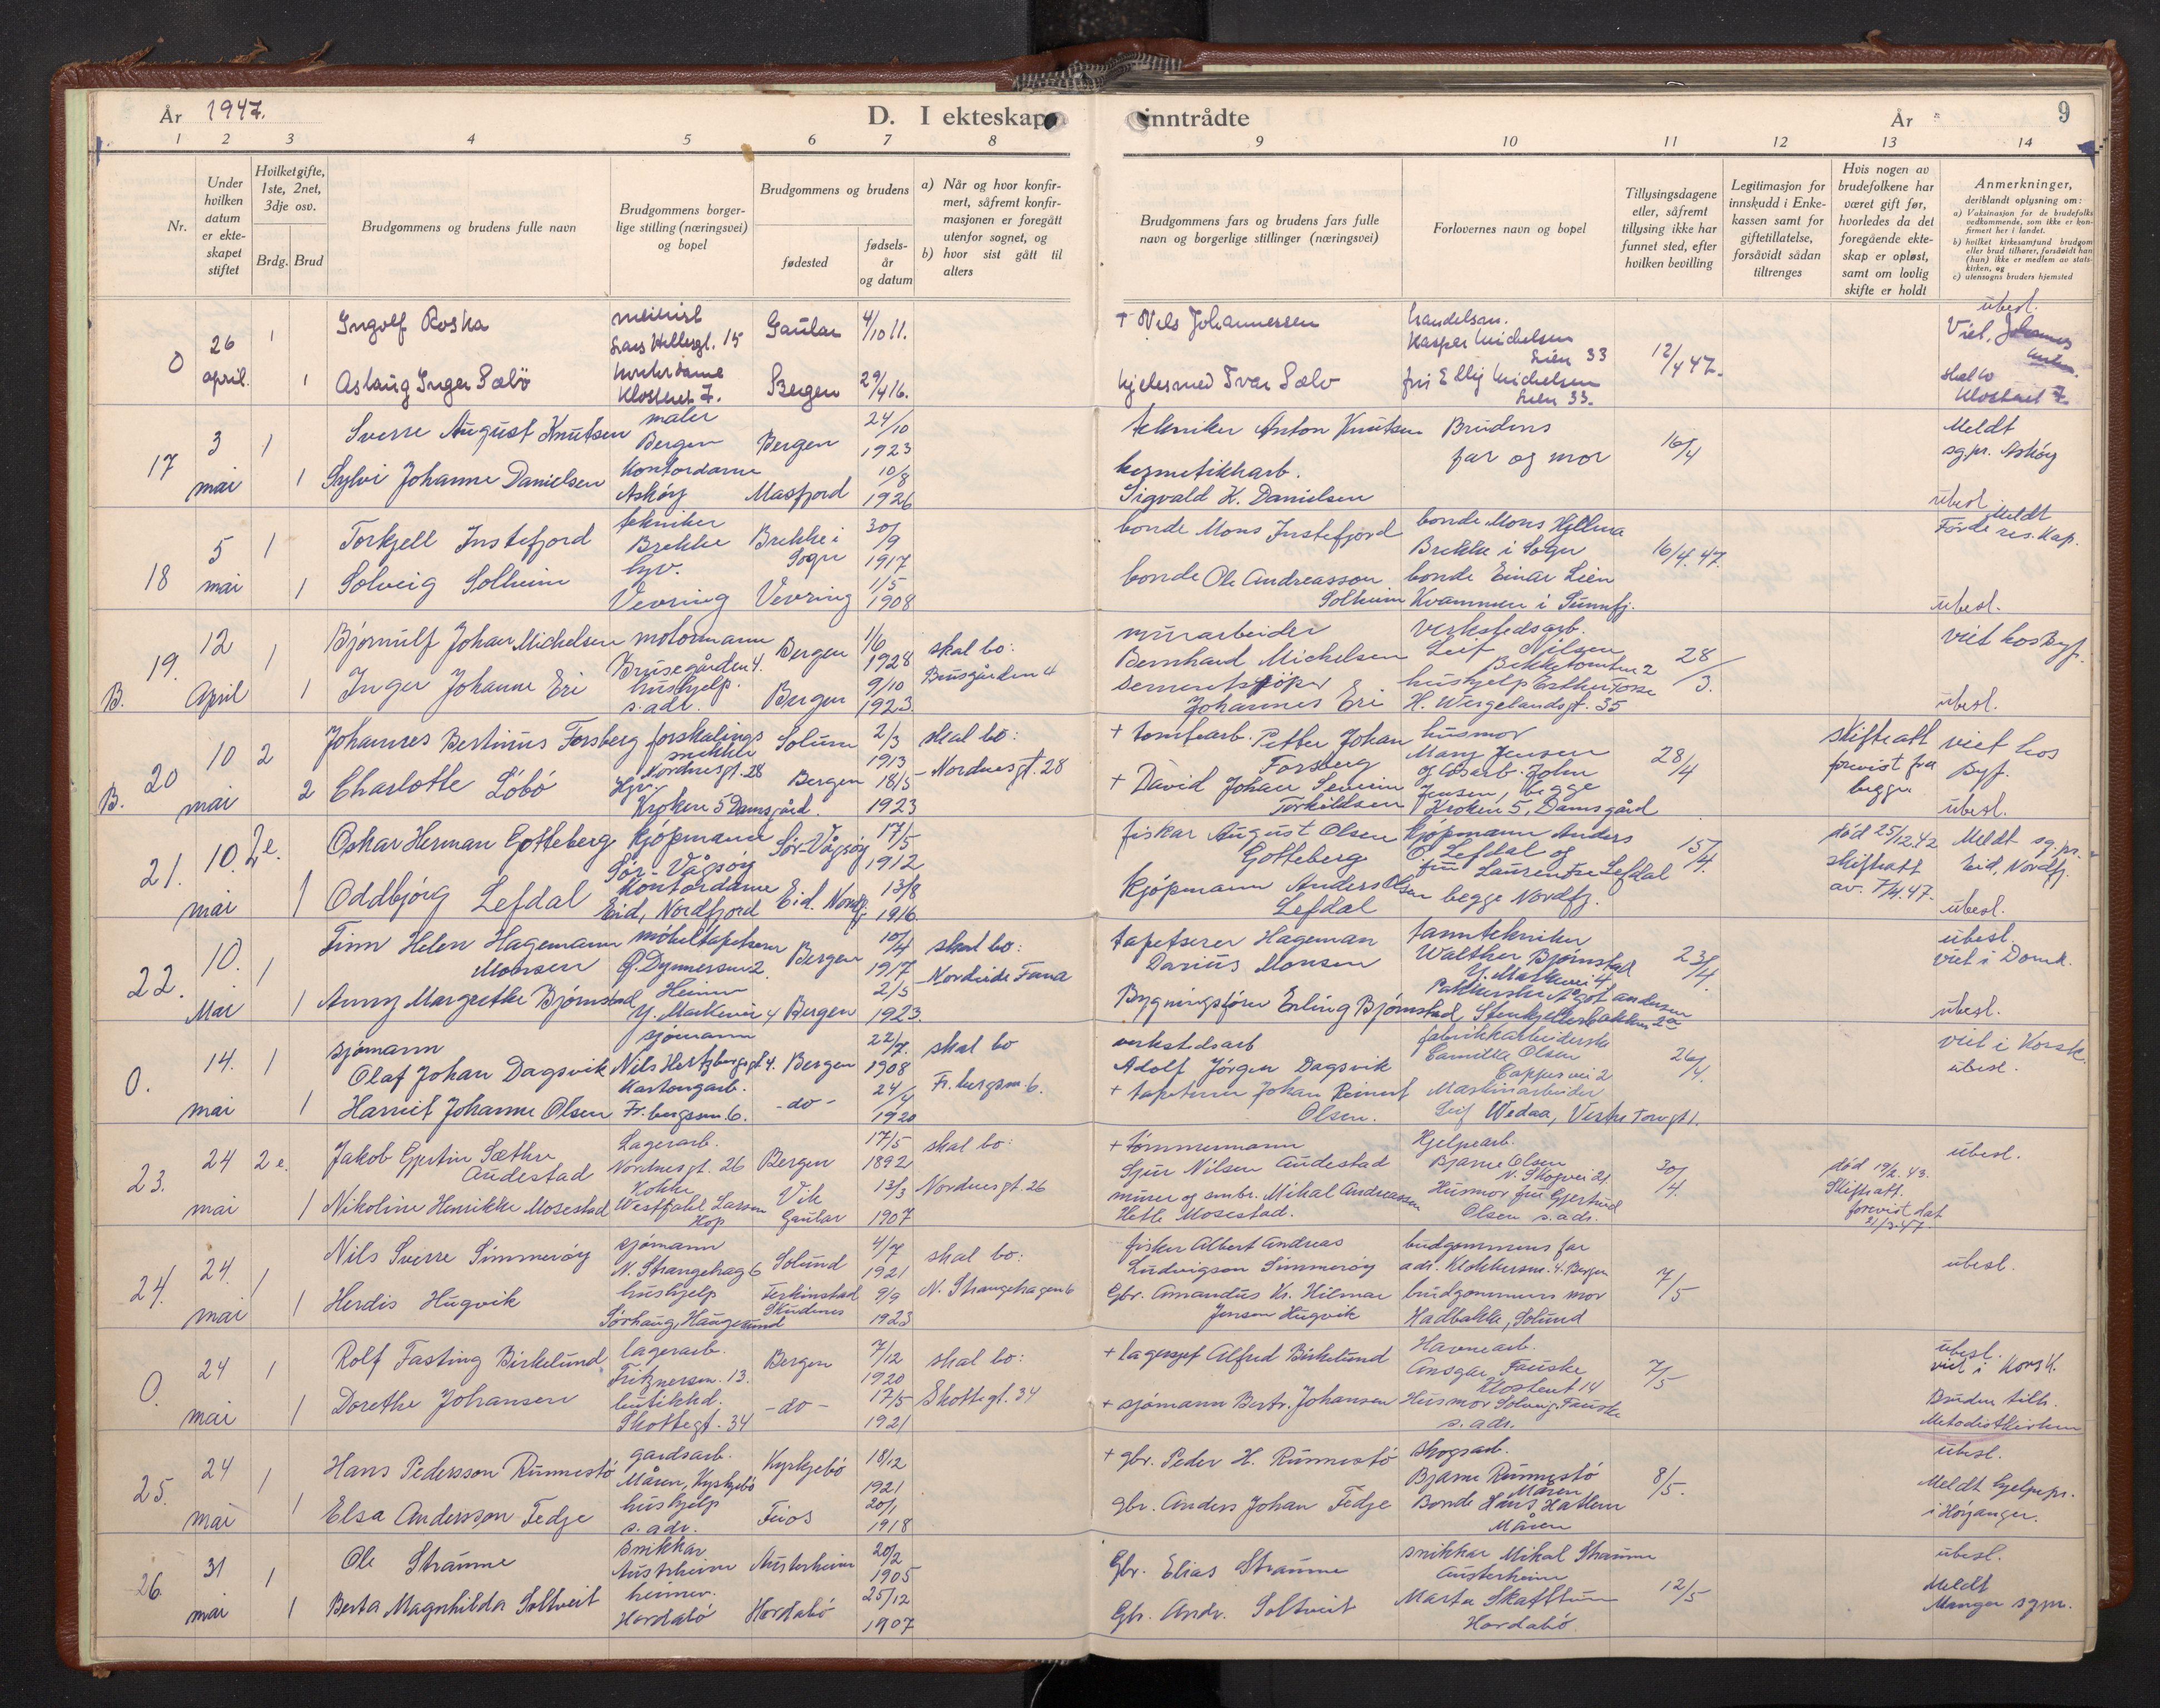 År 1947.
D. I ekteskap inntrådte
År
9
1 2 3 4 5 6 7 8 9 10 11 12 13 14
Nr.
Under hvilken datum er ekteskapet stiftet
Hvilket gifte, 1ste, 2net, 3dje osv.
Brdg. Brud
Brudgommens og brudens fulle navn
Brudgommens borgerlige stilling (næringsvei) og bopel
Brudgommens og brudens
fødested
fødsels-år og datum
a) Når og hvor konfirmert, såfremt konfirmasjonen er foregått utenfor sognet, og
b) hvor sist gått til alters
Brudgommens fars og brudens fars fulle navn og borgerlige stillinger (næringsvei)
Forlovernes navn og bopel
Tillysingsdagene eller, såfremt tillysing ikke har funnet sted, efter hvilken bevilling
Legitimasjon for innskudd i Enkekassen samt for giftetillatelse, forsåvidt sådan tiltrenges
Hvis nogen av brudefolkene har været gift før, hvorledes da det foregående ekteskap er opløst, samt om lovlig skifte er holdt
Anmerkninger, deriblandt oplysning om:
a) Vaksinasjon for de brudefolks vedkommende, som ikke er konfirmert her i landet.
b) hvilket kirkesamfund brudgom eller brud tilhører, forsåvidt han (hun) ikke er medlem av statskirken, og
c) utensogns bruders hjemsted
0 26 april. 1 Ingolf Roska Gaular 4/10 11. + Nils Johannessen handelsm. Kasper Michelsen Lien 33 12/4 47. ubesl. Viel,
1 Aslaug Inger Sælø Klosteret 7. Bergen 29/4 16. kjelesmed Ivar Sælø fru Elly Michelsen Lien 33. skal bo Klosteret 7.
17 3 mai 1 Sverre August Knutsen maler Bergen Bergen 24/10 1923 tekniker Anton Knutsen Brudens far og mor 16/4 Meldt sg.pr. Askøy
1 Sylvi Johanne Danielsen Kontordame Askøy Masfjord 10/8 1926 Sigvald K. Danielsen ubesl.
18 5 mai 1 Torkjell Instefjord tekniker Brekke Brekke i Sogn 30/9 1917 bonde Mons Instefjord bonde Mons Brekke i Sogn 16/4.47. Meldt Førde res. kap.
1 Solveig Solheim Vevring Vevring 1/5 1908 bonde Ole Andreasson Solheim bonde Einar Lien Kvammen i Sunnfj. ubesl.
B. 19. 12 April 1 Bjørnulf Johan Michelsen motormann Krusegården 4. Bergen 1/6 1928 skal bo: murarbeider Bernhard Michelsen verkstedsarb. Leif Nilsen 28/3. viet hos Byf.
1 Inger Johanne Eri hushjelp. s.adr. Bergen 9/10 1923 Johannes Eri hushjelp Esther H. Wergelandsgt. 35 ubesl.
B. 20 10 mai 2 Johannes Bertinus Forsberg forskalingssnekker Nordnesgt. 28 Solum 2/3 1913 skal bo: Nordnesgt. 28 + tomtearb. Petter Johan Forsberg husmor Mary Jensen 28/4 skifteatt. forevist fra begge viet hos Byf.
2 Charlotte Løbø Kroken 5 Damsgård. Bergen 18/5 1923 + David Johan Severin Torkildsen John Jensen, begge Kroken 5, Damsgård ubesl.
21. 10. mai 2e. Oskar Herman Gotteberg kjøpmann Sør-Vågsøy Sør-Vågsøy 17/5 1912 fiskar August Olsen Gotteberg kjøpmann Anders O. Lefdal og 15/4. død 25/12.42 skifteatt av. 7/4.47. Meldt sg.pr. Eid, Nordfj.
1 Oddbjørg Lefdal Kontordame Eid, Nordfjord Eid. Nordfj. 13/8 1916 kjøpmann Anders Olsen Lefdal fru Laurentse Lefdal begge Nordfj. ubesl.
22. 10. Mai 1 Finn Helen Hagemann Monsen møbeltapetserer Bergen 10/4 1917 skal bo: Nordvide Fana tapetserer Hageman Darius Monsen tanntekniker Walther Bjørnstad 23/4. ubesl. viet i Domk.
1 Anny Margrethe Bjørnstad Heime Y. Markevei 4 Bergen 2/5 1923. Bygningsfører Erling Bjørnstad, ubesl.
0. 14. mai 1 sjømann Olaf Johan Dagsvik sjømann Nils Hertzbergsgt 4. Bergen 22/7. 1908 skal bo Fr. bergsm. 6. verkstedsarb Adolf Jørgen Dagsvik fabrikkarbeiderske Camilla Olsen Cappesvei 2 26/4. viet i Korsk. ubesl.
1 Harriet Johanne Olsen Kartongarb. Fr. bergsm. 6. -do- 24/4 1920 + tapetserer Johan Reinert Olsen. Maskinarbeider Leif Wedaa, Vestre Torvgt 1.
23. 24 mai 2e. Jakob Gjertin Sæthre Audestad Lagerarb. Nordnesgt. 26 Bergen 17/5 1892 skal bo: Nordnesgt. 26 + tømmermann Sjur Nilsen Audestad Hjelpearb. Bjarne Olsen N. Skogvei 21 30/4. død 19/2. 43. Skifteatt. forevist dat 21/3.47. ubesl.
1 Nikoline Henrikke Mosestad Kokke Westfahl Larsen Hop Vik Gaular 13/3 1907 Mikal Andreassen Mosestad. Husmor fru Gjertrud Olsen s.adr.
24. 24. mai 1 Nils Sverre Simmerøy sjømann N. Strangehag 6 Solund 4/7 1921 skal bo: N. Strangehagen 6 fisker Albert Andreas Ludvigson Simmerøy brudgommens far adr. Klokkersm. 4. Bergen 7/5 ubesl.
1 Herdis Hugvik hushjelp Sørhaug, Haugesund Ferkinstad Skudenes 9/9 1923 Gbr. Amandus Kr. Hilmar Jensen Hugvik brudgommens mor Hadbakke, Solund
0. 24 mai 1 Rolf Fasting Birkelund lagerarb. Fritznersm. 13. Bergen 7/12 1920 skal bo: Skottegt. 34 + lagersjef Alfred Birkelund Havnearb. Ansgar Fauske Klosteret 14 7/5 ubesl. viet i Korsk.
1 Dorethe Johansen butikkd. Skottegt. 34 -do- 17/5 1921 + sjømann Bertr. Johansen Husmor Solveig Fauske s. adr. Bruden tilh. Metodistkirken
25. 24 mai 1 Hans Pedersson Runnestø gardsarb. Måren, Kyrkjebø Kyrkjebø 18/12 1921 + gbr. Peder H. Runnestø skogsarb. Bjarne Runnestø Måren 8/5. ubesl. Meldt Hjelpepr. i Høyanger.
1 Elsa Andersson Fedje hushjelp s. adr. Feios 20/1 1918 gbr. Anders Johan Fedje Bonde Hans Hatlem Måren
26. 31 mai 1 Ole Straume snikkar Austrheim Austerheim 20/2 1905 Gbr. Elias Straume snikkar Mikal Straume Austerheim 12/5 ubesl. Meldt Manger sgpr.
1 Berta Magnhilda Soltveit heimev. Hordabø Hordabø 25/12 1907 Gbr. Andr. Soltveit Marta Skafttun Hordabø